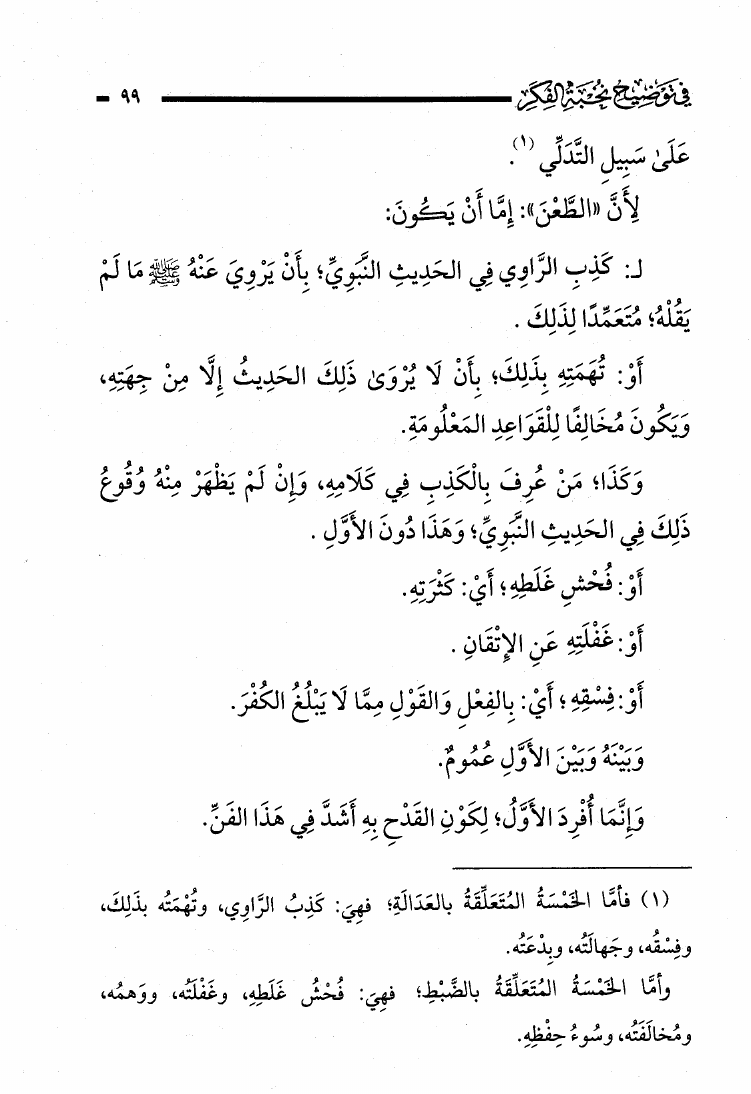 في توضيح نخبة الفكر ٩٩
عَلَىٰ سَبِيلِ التَّدَلِّي (١).
لِأَنَّ «الطَّعْنَ»: إِمَّا أَنْ يَكُونَ:
لـ: كَذِبِ الرَّاوِي فِي الحَدِيثِ النَّبَوِيِّ؛ بِأَنْ يَرْوِيَ عَنْهُ ﷺ مَا لَمْ
يَقُلْهُ؛ مُتَعَمِّدًا لِذَلِكَ .
أَوْ: تُهَمَتِهِ بِذَلِكَ؛ بِأَنْ لَا يُرْوَىٰ ذَلِكَ الحَدِيثُ إِلَّا مِنْ جِهَتِهِ،
وَيَكُونَ مُخَالِفًا لِلْقَوَاعِدِ المَعْلُومَةِ.
وَكَذَا؛ مَنْ عُرِفَ بِالْكَذِبِ فِي كَلَامِهِ، وَإِنْ لَمْ يَظْهَرْ مِنْهُ وُقُوعُ
ذَلِكَ فِي الحَدِيثِ النَّبَوِيِّ؛ وَهَذَا دُونَ الأَوَّلِ .
أَوْ: فُحْشِ غَلَطِهِ؛ أَيْ: كَثْرَتِهِ.
أَوْ: غَفْلَتِهِ عَنِ الإِتْقَانِ .
أَوْ: فِسْقِهِ؛ أَيْ: بِالفِعْلِ وَالقَوْلِ مِمَّا لَا يَبْلُغُ الكُفْرَ.
وَبَيْنَهُ وَبَيْنَ الأَوَّلِ عُمُومٌ.
وَإِنَّمَا أُفْرِدَ الأَوَّلُ؛ لِكَوْنِ القَدْحِ بِهِ أَشَدَّ فِي هَذَا الفَنِّ.
(١) فأمَّا الخَمْسَةُ المُتَعَلِّقَةُ بالعَدَالَةِ؛ فهِيَ: كَذِبُ الرَّاوِي، وتُهْمَتُه بذَلِكَ،
وفِسْقُه، وجَهالَتُه، وبِدْعَتُه.
وأمَّا الخَمْسَةُ المُتَعَلِّقَةُ بالضَّبْطِ؛ فهِيَ: فُحْشُ غَلَطِهِ، وغَفْلَتُه، ووَهمُه،
ومُخالَفَتُه، وسُوءُ حِفْظِهِ.